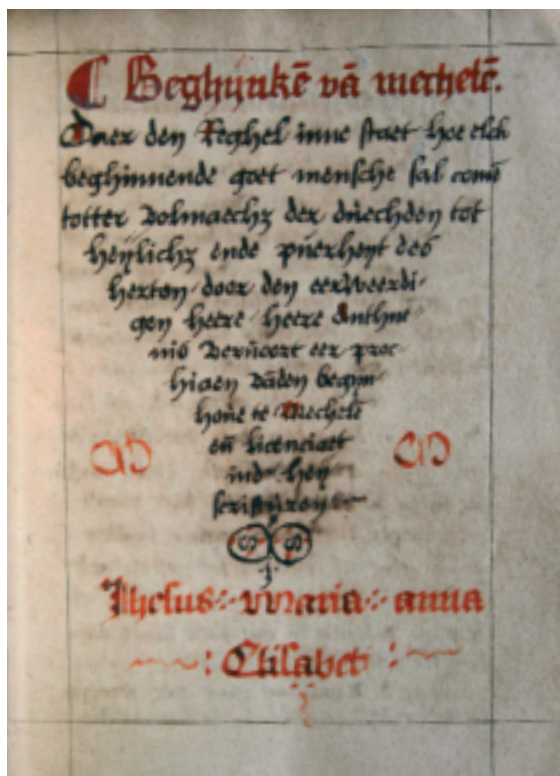 Beghijnkē vā mechelē.
Daer den Reghel inne staet hoe elck
beghinnende goet mensche sal comē
totter volmaechz der duechden tot
heylichz ende puerheyt des
herten door den eerweerdi-
gen heere heere Anthoe
nis veruoort eer proc
hiaen vādēn begijn
houe te Mechelē
eñ licenciaet
inder hey
scrifturen
Ihesus Maria anna
: Elisabet :